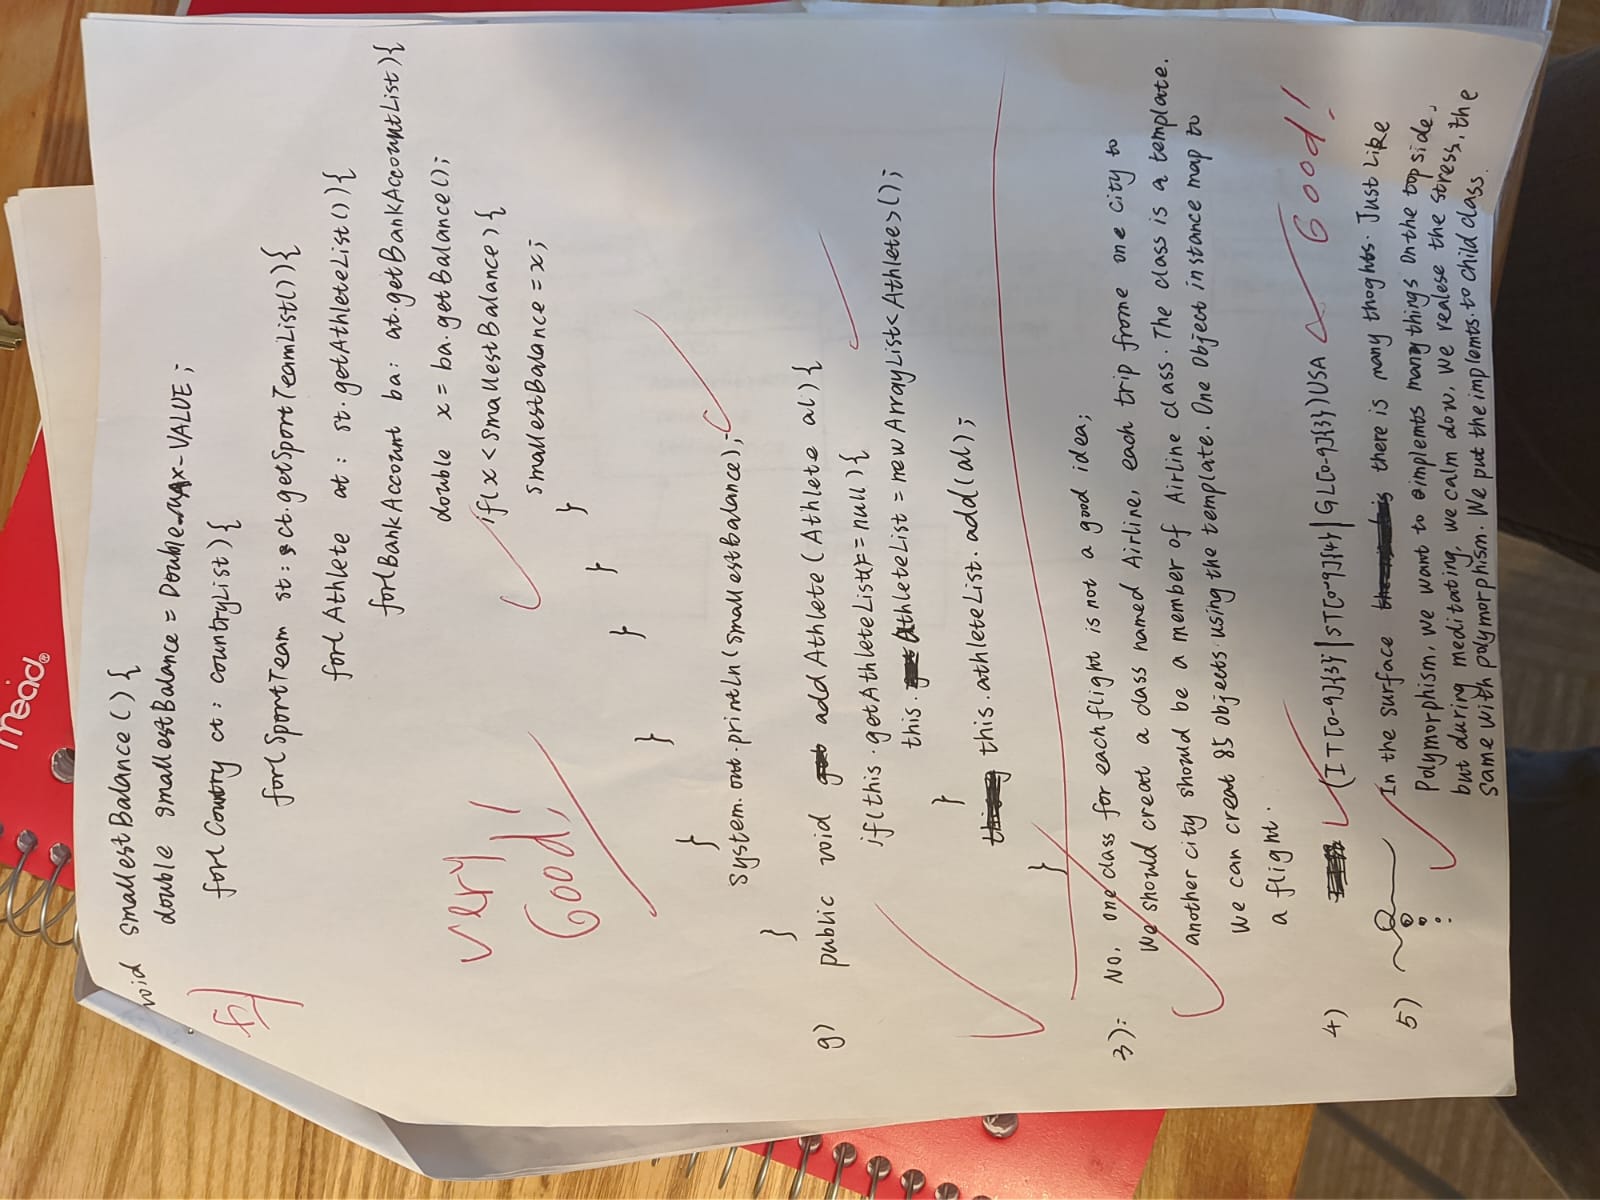 mead®
void smallestBalance() {
double smallestBalance = Double.MAX-VALUE;
for(Country ct: countryList){
for(SportTeam st: ct.getSportTeamList()){
for(Athlete at: st.getAthleteList()){
for(BankAccount ba: at.getBankAccountList){
double x = ba.getBalance();
if(x < smallestBalance){
smallestBalance = x;
}
}
}
}
}
System.out.println(smallestBalance);
}
f)
very
Good!
g) public void addAthlete(Athlete al){
if(this.getAthleteList()==null){
this.athleteList = new ArrayList<Athlete>();
}
this.athleteList.add(al);
}
3): No, one class for each flight is not a good idea;
We should creat a class named Airline, each trip frome one city to
another city should be a member of Airline class. The class is a template.
We can creat 85 objects using the template. One Object instance map to
a flight.
4) (IT[0-9]{3}|ST[0-9]{4}|GL[0-9]{3})USA Good!
5) In the surface there is many thoghts. Just like
Polymorphism, we want to eimplemts many things on the top side,
but during meditating, we calm dow, we realese the stress, the
same with polymorphism. We put the implemts to child class.